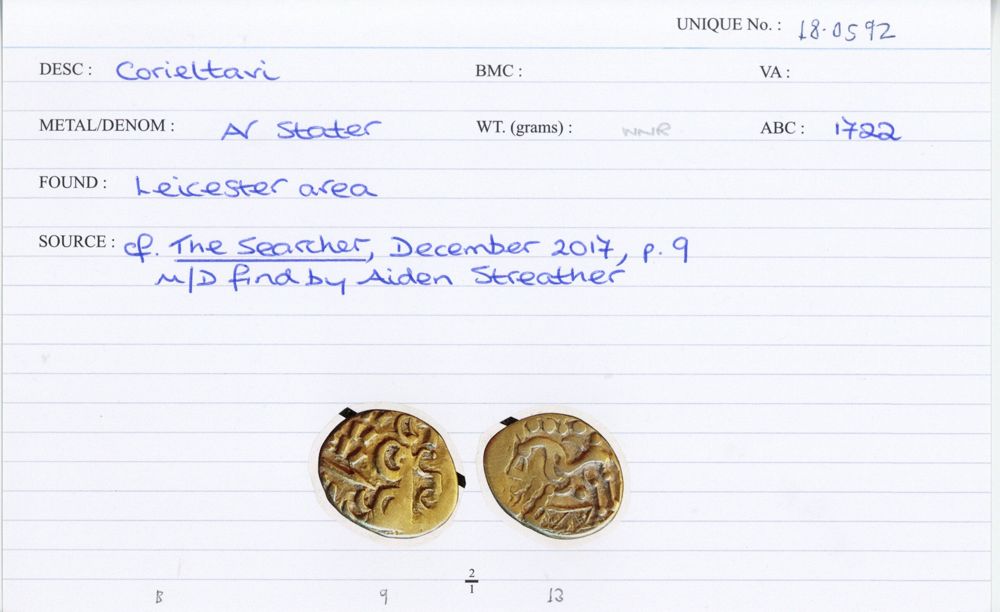 UNIQUE No. : 18.0592
DESC : Corieltavi BMC : VA :
METAL/DENOM : AV Stater WT. (grams) : WNR ABC : 1722
FOUND : Leicester area
SOURCE : cf. The Searcher, December 2017, p. 9
M/D find by Aiden Streather
2
1
B 9 13